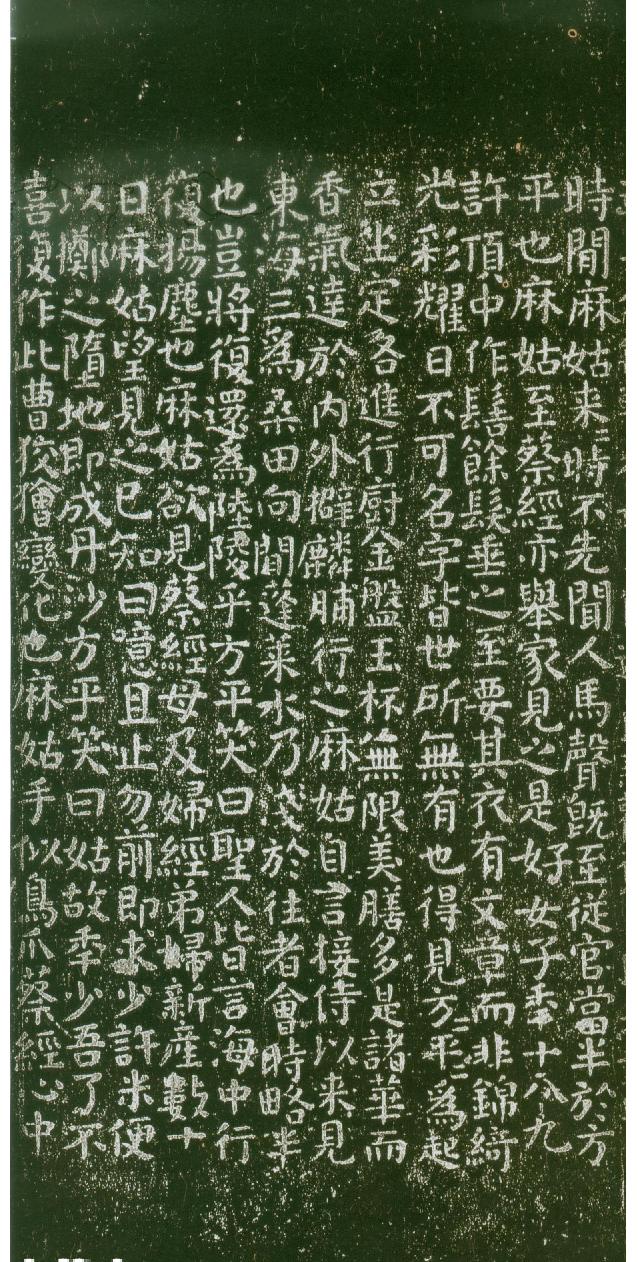 時間麻姑来〻時不先聞人馬聲既至從官當半於方
平也麻姑至蔡經亦舉家見之是好女子年十八九
許頂中作髻餘髮垂之至要其衣有文章而非錦綺
光彩耀日不可名字皆世所無有也得見方〻平〻為起
立坐定各進行厨金盤玉杯無限美膳多是諸華而
香氣達於内外擗麟脯行之麻姑自言接侍以来見
東海三為桑田向間蓬莱水乃淺於往者會時略半
也豈將復還為陸陵乎方平笑曰聖人皆言海中行
復揚塵也麻姑欲見蔡經母及婦經弟婦新産數十
日麻姑望見之已知曰噫且止勿前即求少許米便
以擲之墮地即成丹沙方平笑曰姑故年少吾了不
喜復作此曹狡獪變化也麻姑手似鳥爪蔡經心中